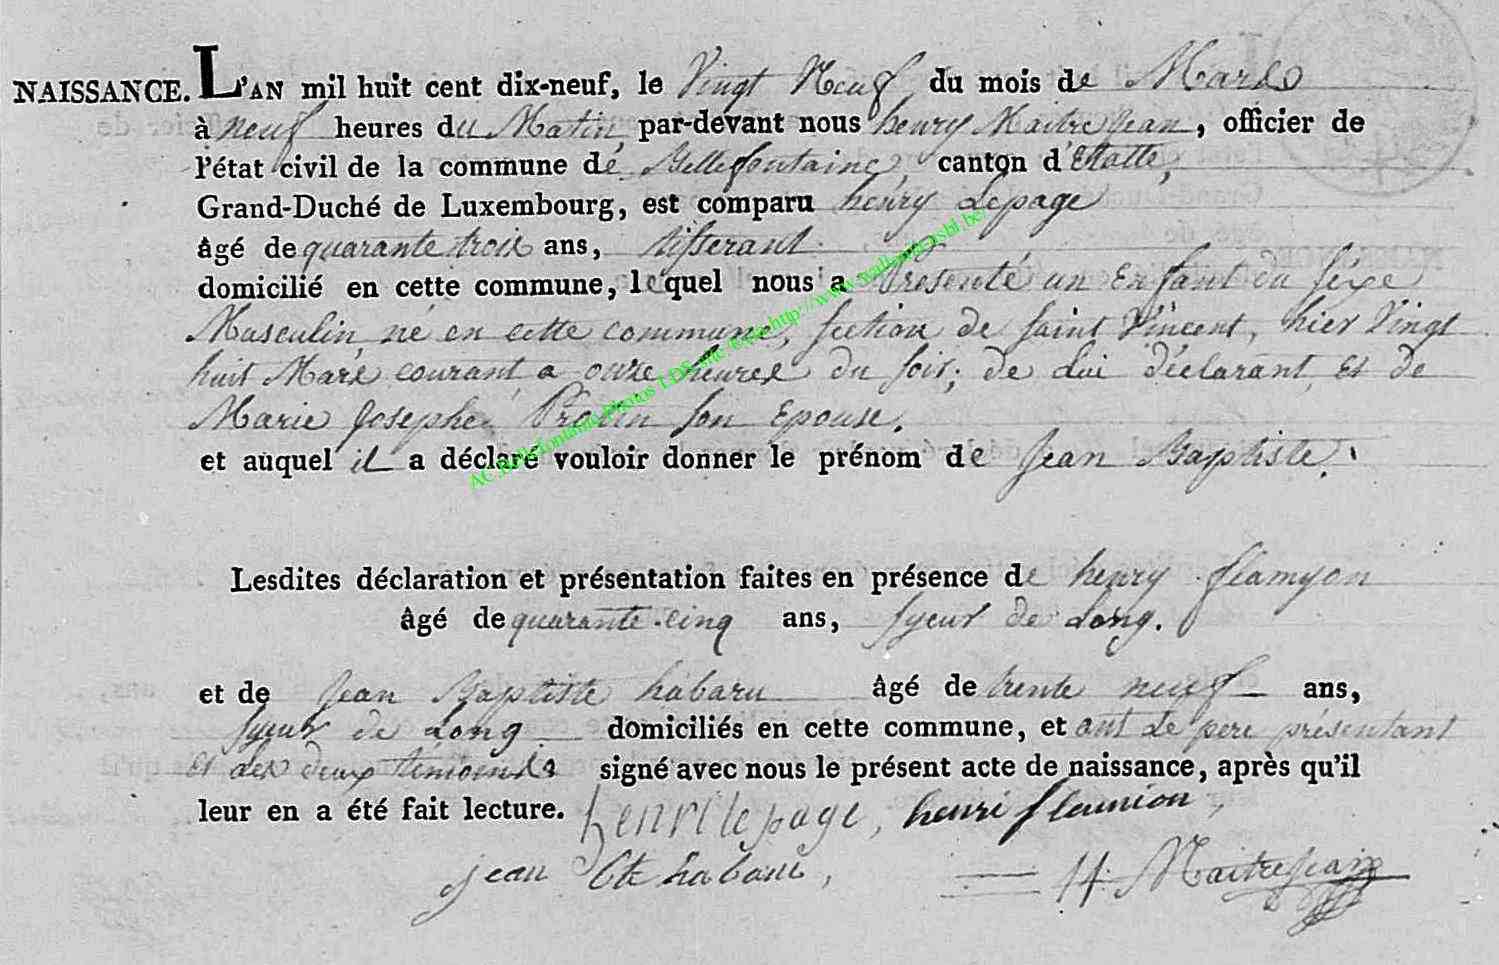 NAISSANCE. L'AN mil huit cent dix-neuf, le Vingt Neuf du mois de Mars
à neuf heures du Matin, par-devant nous henry Maitrejean, officier de
l'état civil de la commune de Bellefontaine, canton d'Etalle,
Grand-Duché de Luxembourg, est comparu henry Lepage
âgé de quarante trois ans, tisserant
domicilié en cette commune, lequel nous a Présenté un Enfant du séxe
Masculin, né en cette commune, section de saint Vincent, hier Vingt
huit Mars courant a onze heures du soir; de Lui déclarant, et de
Marie Josephe, son Epouse.
et auquel il a déclaré vouloir donner le prénom de Jean Baptiste.
Lesdites déclaration et présentation faites en présence de henry
âgé de quarante-cinq ans, syeur de Long.
et de Jean Baptiste habaru âgé de trente neuf ans,
syeur de Long domiciliés en cette commune, et ont Le pere présentant
et les deux témoins signé avec nous le présent acte de naissance, après qu'il
leur en a été fait lecture. henri lepage, henri
jean Bte habaru,
H. Maitrejean
AC Bellefontaine Photos LDS site http://www.